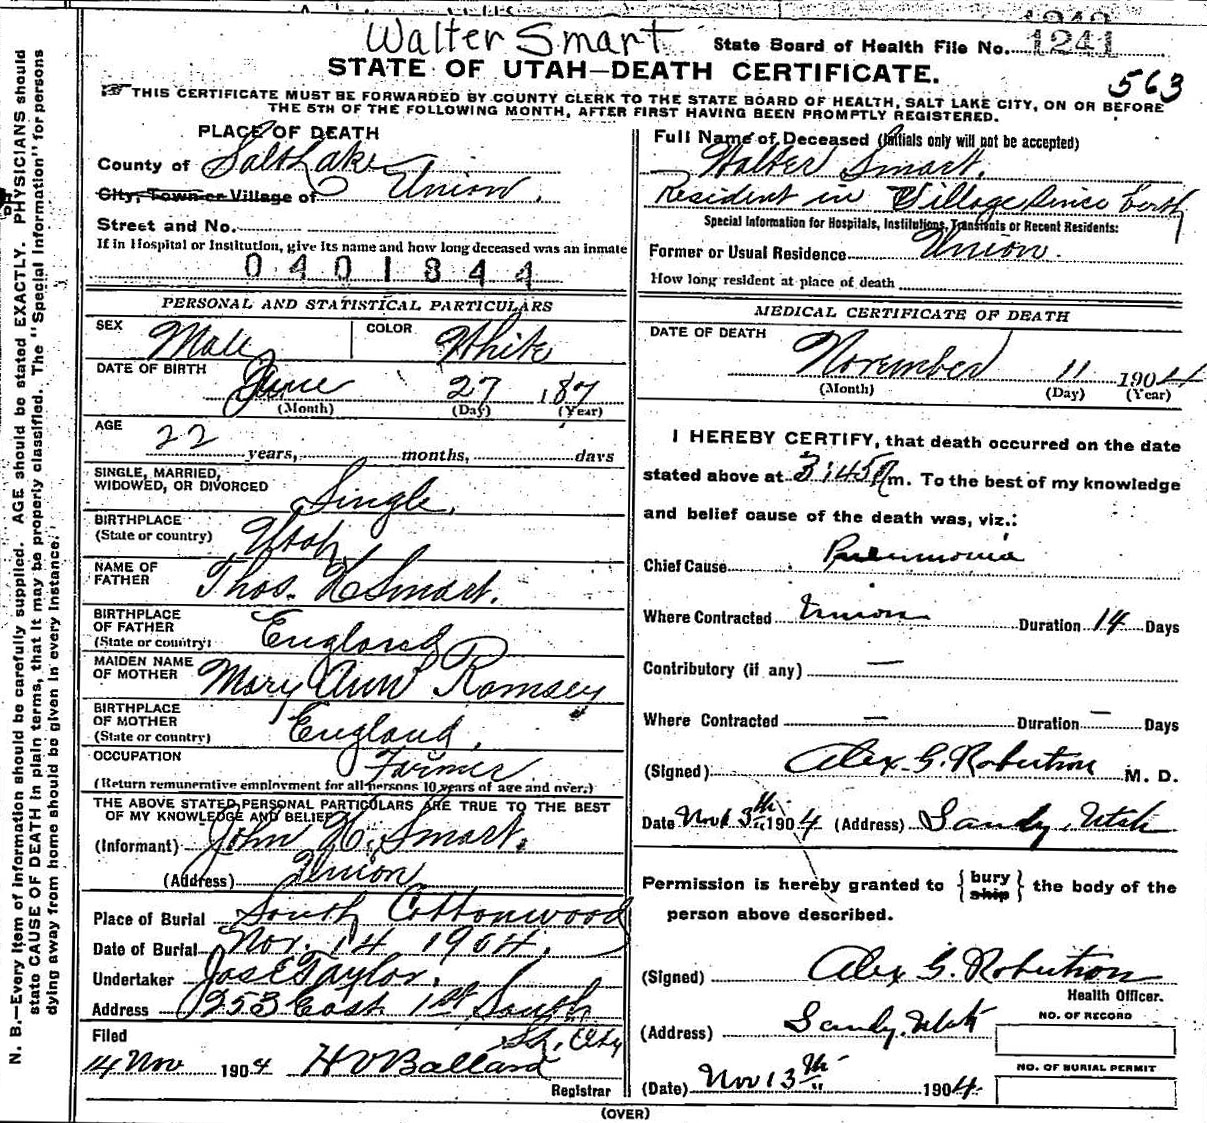 Walter Smart
State Board of Health File No. 1241
STATE OF UTAH—DEATH CERTIFICATE.
563
THIS CERTIFICATE MUST BE FORWARDED BY COUNTY CLERK TO THE STATE BOARD OF HEALTH, SALT LAKE CITY, ON OR BEFORE
THE 5TH OF THE FOLLOWING MONTH, AFTER FIRST HAVING BEEN PROMPTLY REGISTERED.
N. B.—Every item of information should be carefully supplied. AGE should be stated EXACTLY. PHYSICIANS should
state CAUSE OF DEATH in plain terms, that it may be properly classified. The "Special Information" for persons
dying away from home should be given in every instance.
PLACE OF DEATH
County of Salt Lake
City, Town or Village of Union.
Street and No.
If in Hospital or Institution, give its name and how long deceased was an inmate
0401844
PERSONAL AND STATISTICAL PARTICULARS
SEX Male COLOR White
DATE OF BIRTH June 27 187
(Month) (Day) (Year)
AGE 22 years, months, days
SINGLE, MARRIED,
WIDOWED, OR DIVORCED Single.
BIRTHPLACE
(State or country) Utah
NAME OF
FATHER Thos. H Smart.
BIRTHPLACE
OF FATHER
(State or country) England
MAIDEN NAME
OF MOTHER Mary Ann Ramsey
BIRTHPLACE
OF MOTHER
(State or country) England,
OCCUPATION Farmer
(Return remunerative employment for all persons 10 years of age and over.)
THE ABOVE STATED PERSONAL PARTICULARS ARE TRUE TO THE BEST
OF MY KNOWLEDGE AND BELIEF
(Informant) John H. Smart.
(Address) Union
Place of Burial South Cottonwood
Date of Burial Nov. 14 1904.
Undertaker Jos E Taylor.
Address 253 East 1st South
S.L. City
Filed
14 Nov 1904 H V Ballard
Registrar
Full Name of Deceased (Initials only will not be accepted)
Walter Smart.
Resident in Village since berth
Special Information for Hospitals, Institutions, Transients or Recent Residents:
Former or Usual Residence Union.
How long resident at place of death
MEDICAL CERTIFICATE OF DEATH
DATE OF DEATH November 11 1904
(Month) (Day) (Year)
I HEREBY CERTIFY, that death occurred on the date
stated above at 3:45 P m. To the best of my knowledge
and belief cause of the death was, viz.:
Chief Cause Pneumonia
Where Contracted Union Duration 14 Days
Contributory (if any) —
Where Contracted — Duration — Days
(Signed) Alex. G. Robertson M. D.
Date 1904 (Address) Sandy, Utah
Permission is hereby granted to { bury ship } the body of the
person above described.
(Signed) Alex G. Robertson
Health Officer.
(Address) Sandy, Utah
NO. OF RECORD
NO. OF BURIAL PERMIT
(Date) Nov 13th 1904
(OVER)